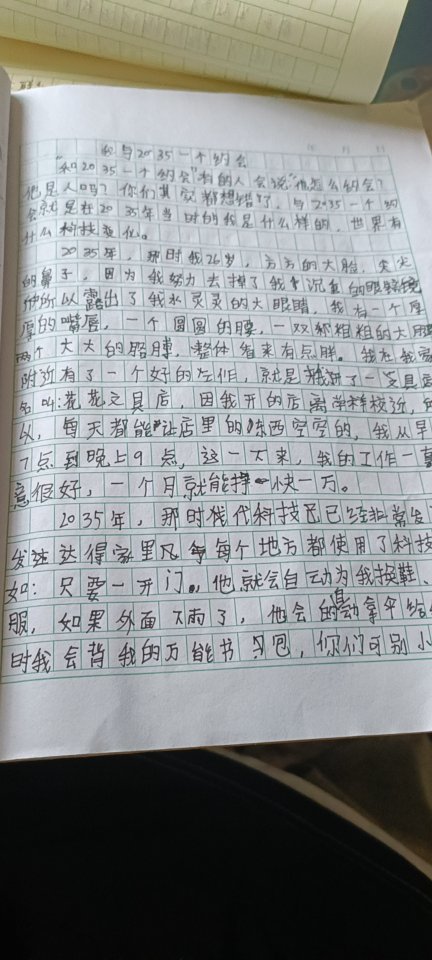 我与2035一个约会
"和2035一个约会"有的人会说"他怎么约会?
他是人吗?你们其实都想错了,与2035一个约
会就是在2035年当时的我是什么样的,世界有
什么科技变化。
2035年,那时我26岁,方方的大脸,尖尖
的鼻子,因为我努力去掉了我沉重的眼镜
所以露出了我水灵灵的大眼睛,我有一个厚
厚的嘴唇,一个圆圆的腰,一双粗粗的大腿
两个大大的胳膊,整体看来有点胖。我在我家
附近有了一个好的工作,就是我开了一文具店
名叫:花花文具店,因我开的店离学校近,所
以,每天都能让店里的东西空空的,我从早
7点到晚上9点,这一天来,我的工作一直
意很好,一个月就能挣快一万。
2035年,那时代科技已经非常发
发达达得家里每个地方都使用了科技
如:只要一开门,他就会自动为我换鞋、
服,如果外面下雨了,他会自动拿伞给
时我会背我的万能书包,你们可别小